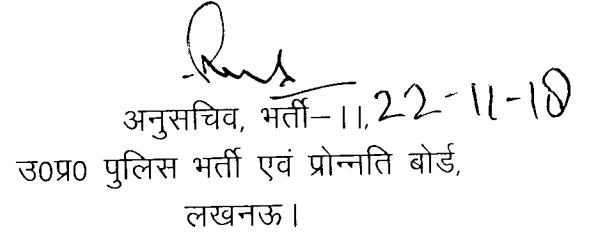 अनुसचिव, भर्ती–11, 22-11-18
उ0प्र0 पुलिस भर्ती एवं प्रोन्नति बोर्ड,
लखनऊ।